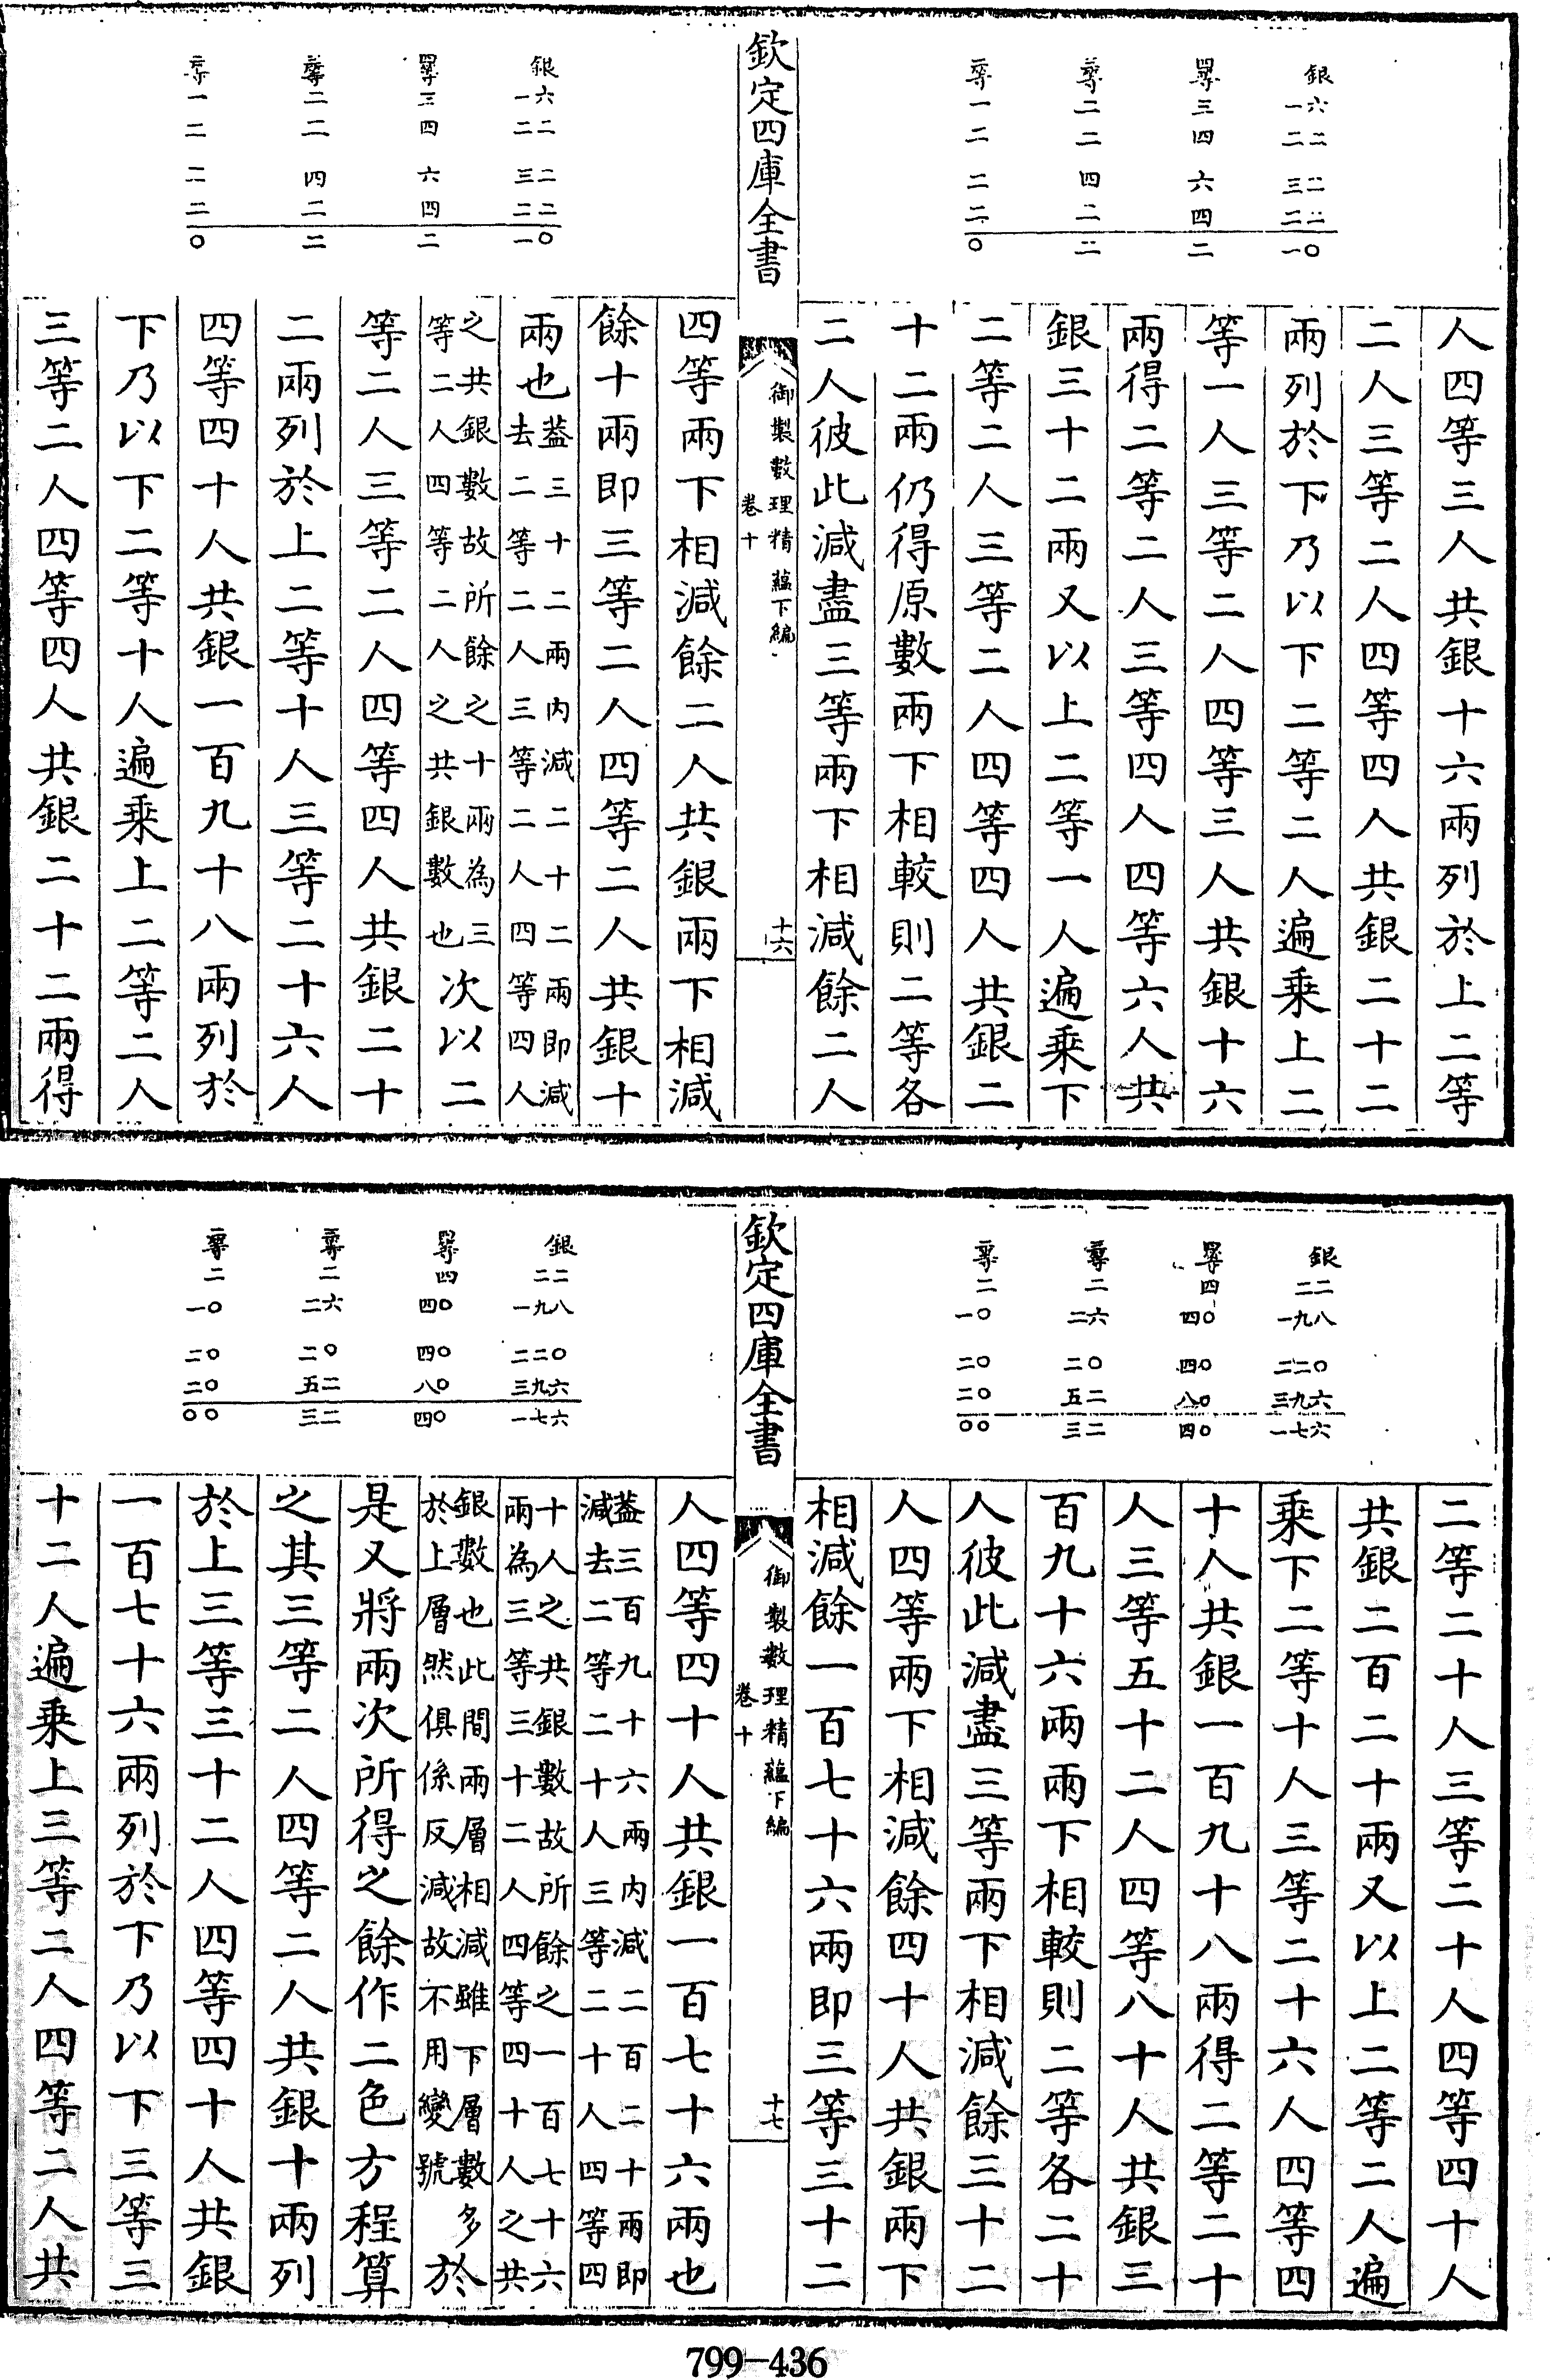 銀 一六 二二 三二 二二 一〇
四等 三 四 六 四 二
三等 二 二 四 二 二
二等 一 二 二 二 〇
人四等三人共銀十六兩列於上二等
二人三等二人四等四人共銀二十二
兩列於下乃以下二等二人遍乘上二
等一人三等二人四等三人共銀十六
兩得二等二人三等四人四等六人共
銀三十二兩又以上二等一人遍乘下
二等二人三等二人四等四人共銀二
十二兩仍得原數兩下相較則二等各
二人彼此減盡三等兩下相減餘二人
欽定四庫全書
御製數理精蘊下編
卷十
十六
銀 一六 二二 三二 二二 一〇
四等 三 四 六 四 二
三等 二 二 四 二 二
二等 一 二 二 二 〇
四等兩下相減餘二人共銀兩下相減
餘十兩即三等二人四等二人共銀十
兩也葢三十二兩内減二十二兩即減
去二等二人三等二人四等四人
之共銀數故所餘之十兩為三
等二人四等二人之共銀數也次以二
等二人三等二人四等四人共銀二十
二兩列於上二等十人三等二十六人
四等四十人共銀一百九十八兩列於
下乃以下二等十人遍乘上二等二人
三等二人四等四人共銀二十二兩得
銀 二二 一九八 二二〇 三九六 一七六
四等 四 四〇 四〇 八〇 四〇
三等 二 二六 二〇 五二 三二
二等 二 一〇 二〇 二〇 〇〇
二等二十人三等二十人四等四十人
共銀二百二十兩又以上二等二人遍
乘下二等十人三等二十六人四等四
十人共銀一百九十八兩得二等二十
人三等五十二人四等八十人共銀三
百九十六兩兩下相較則二等各二十
人彼此減盡三等兩下相減餘三十二
人四等兩下相減餘四十人共銀兩下
相減餘一百七十六兩即三等三十二
欽定四庫全書
御製數理精蘊下編
卷十
十七
銀 二二 一九八 二二〇 三九六 一七六
四等 四 四〇 四〇 八〇 四〇
三等 二 二六 二〇 五二 三二
二等 二 一〇 二〇 二〇 〇〇
人四等四十人共銀一百七十六兩也
葢三百九十六兩内減二百二十兩即
減去二等二十人三等二十人四等四
十人之共銀數故所餘之一百七十六
兩為三等三十二人四等四十人之共
銀數也此間兩層相減雖下層數多
於上層然俱係反減故不用變號於
是又將兩次所得之餘作二色方程算
之其三等二人四等二人共銀十兩列
於上三等三十二人四等四十人共銀
一百七十六兩列於下乃以下三等三
十二人遍乘上三等二人四等二人共
799-436